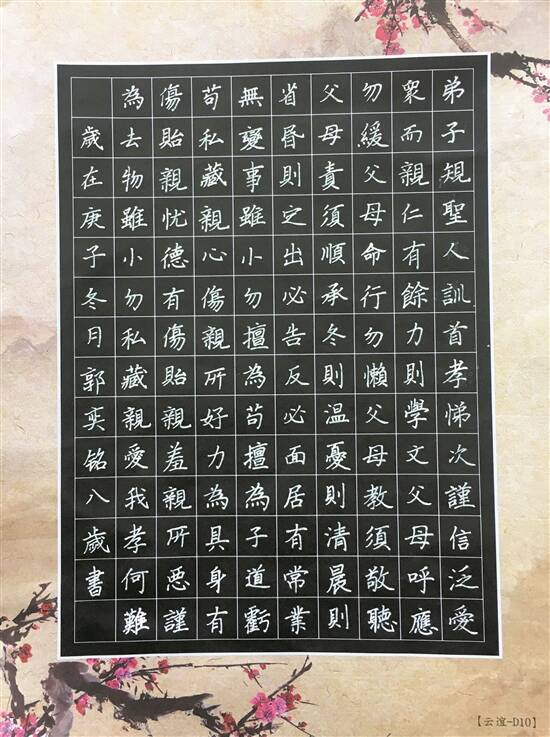 弟子規聖人訓首孝悌次謹信泛愛
衆而親仁有餘力則學文父母呼應
勿緩父母命行勿懶父母教須敬聽
父母責須順承冬則温憂則清晨則
省昏則定出必告反必面居有常業
無變事雖小勿擅為苟擅為子道虧
苟私藏親心傷親所好力為具身有
傷貽親忧德有傷貽親羞親所惡謹
為去物雖小勿私藏親愛我孝何難
歲在庚子冬月郭奕铭八歲書
【云谊-D10】